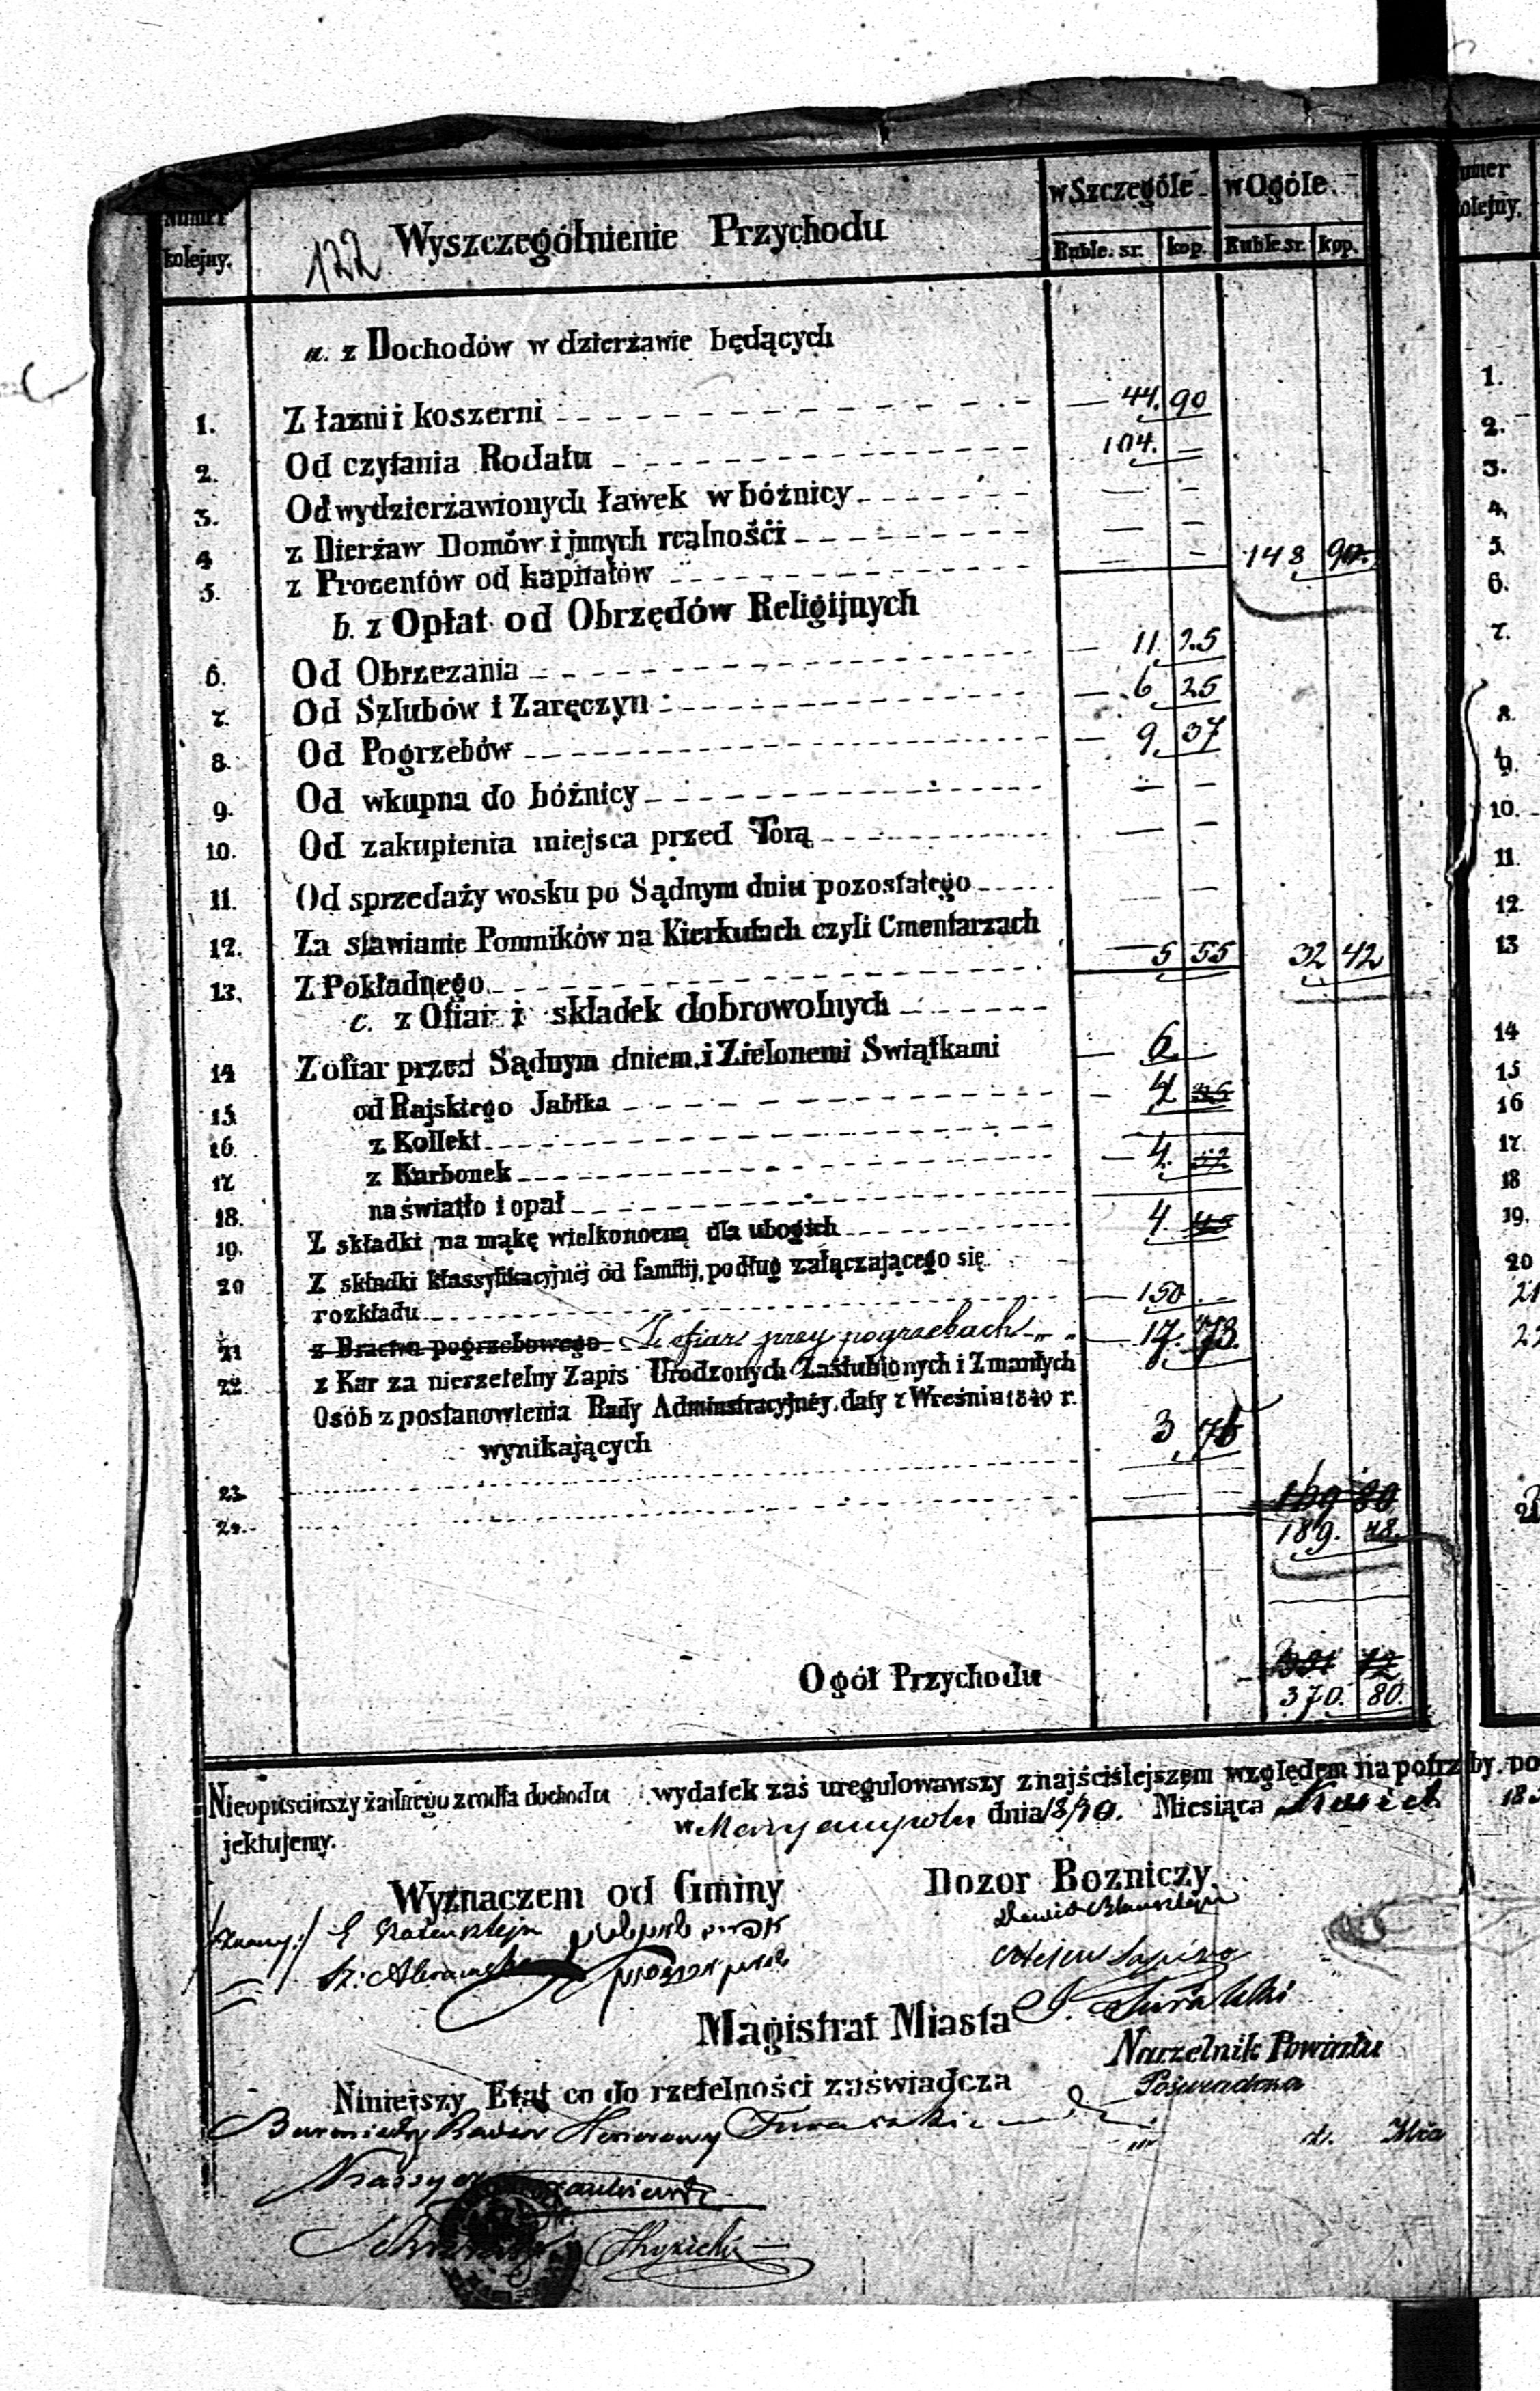 Numer kolejny. 122 Wyszczególnienie Przychodu w Szczególe w Ogóle.
Ruble. sr. kop. Ruble sr. kop.
a. z Dochodów w dzierżawie będących
1. Z łazni i koszerni 44. 90
2. Od czytania Rodału 104. —
3. Od wydzierżawionych ławek w bóżnicy — —
4 z Dierżaw Domów i jnnych realnośći — —
5. z Procentów od kapitałów — — 148 90.
b. z Opłat od Obrzędów Religijnych
6. Od Obrzezania — 11. 25
7. Od Szlubów i Zaręczyn — 6 25
8. Od Pogrzebów — 9. 37
9. Od wkupna do bóżnicy — —
10. Od zakupienia miejsca przed Torą — —
11. Od sprzedaży wosku po Sądnym dniu pozostałego — —
12. Za stawianie Pomników na Kierkutach czyli Cmentarzach
13. Z Pokładnego. 5 55 32 42
c. z Ofiar i składek dobrowolnych
14 Z ofiar przed Sądnym dniem, i Zielonemi Swiątkami — 6. —
15 od Rajskiego Jabłka — 4
16. z Kollekt
17 z Karbonek — 4.
18. na światło i opał
19. Z składki na mąkę wielkonocną dla ubogich 4.
20 Z składki klassyfikacyjnéj od familij, podług załączającego się
rozkładu — 150. —
21 z Bractwa pogrzebowego Z ofiar przy pogrzebach — 17. 73.
22 z Kar za nierzetelny Zapis Urodzonych Zaślubionych i Zmarłych
Osób z postanowienia Rady Administracyjnéy. daty z Wreśnia 1840 r.
wynikających 3 75
23.
24. 169 80
189. 48.
Ogół Przychodu
370. 80.
Nieopuściwszy żadnego zrodła dochodu wydatek zaś uregulowawszy z najściślejszem względem na potrzeby. po
jektujemy. w Maryampolu dnia 18/30. Miesiąca 185
Wyznaczem od Gminy Dozor Bozniczy.
Magistrat Miasta
Naczelnik Powiatu
Niniejszy Etat co do rzetelności zaświadcza
Burmistrz Radca Honorowy